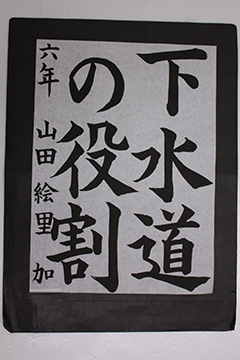 下水道
の役割
六年 山田絵里加